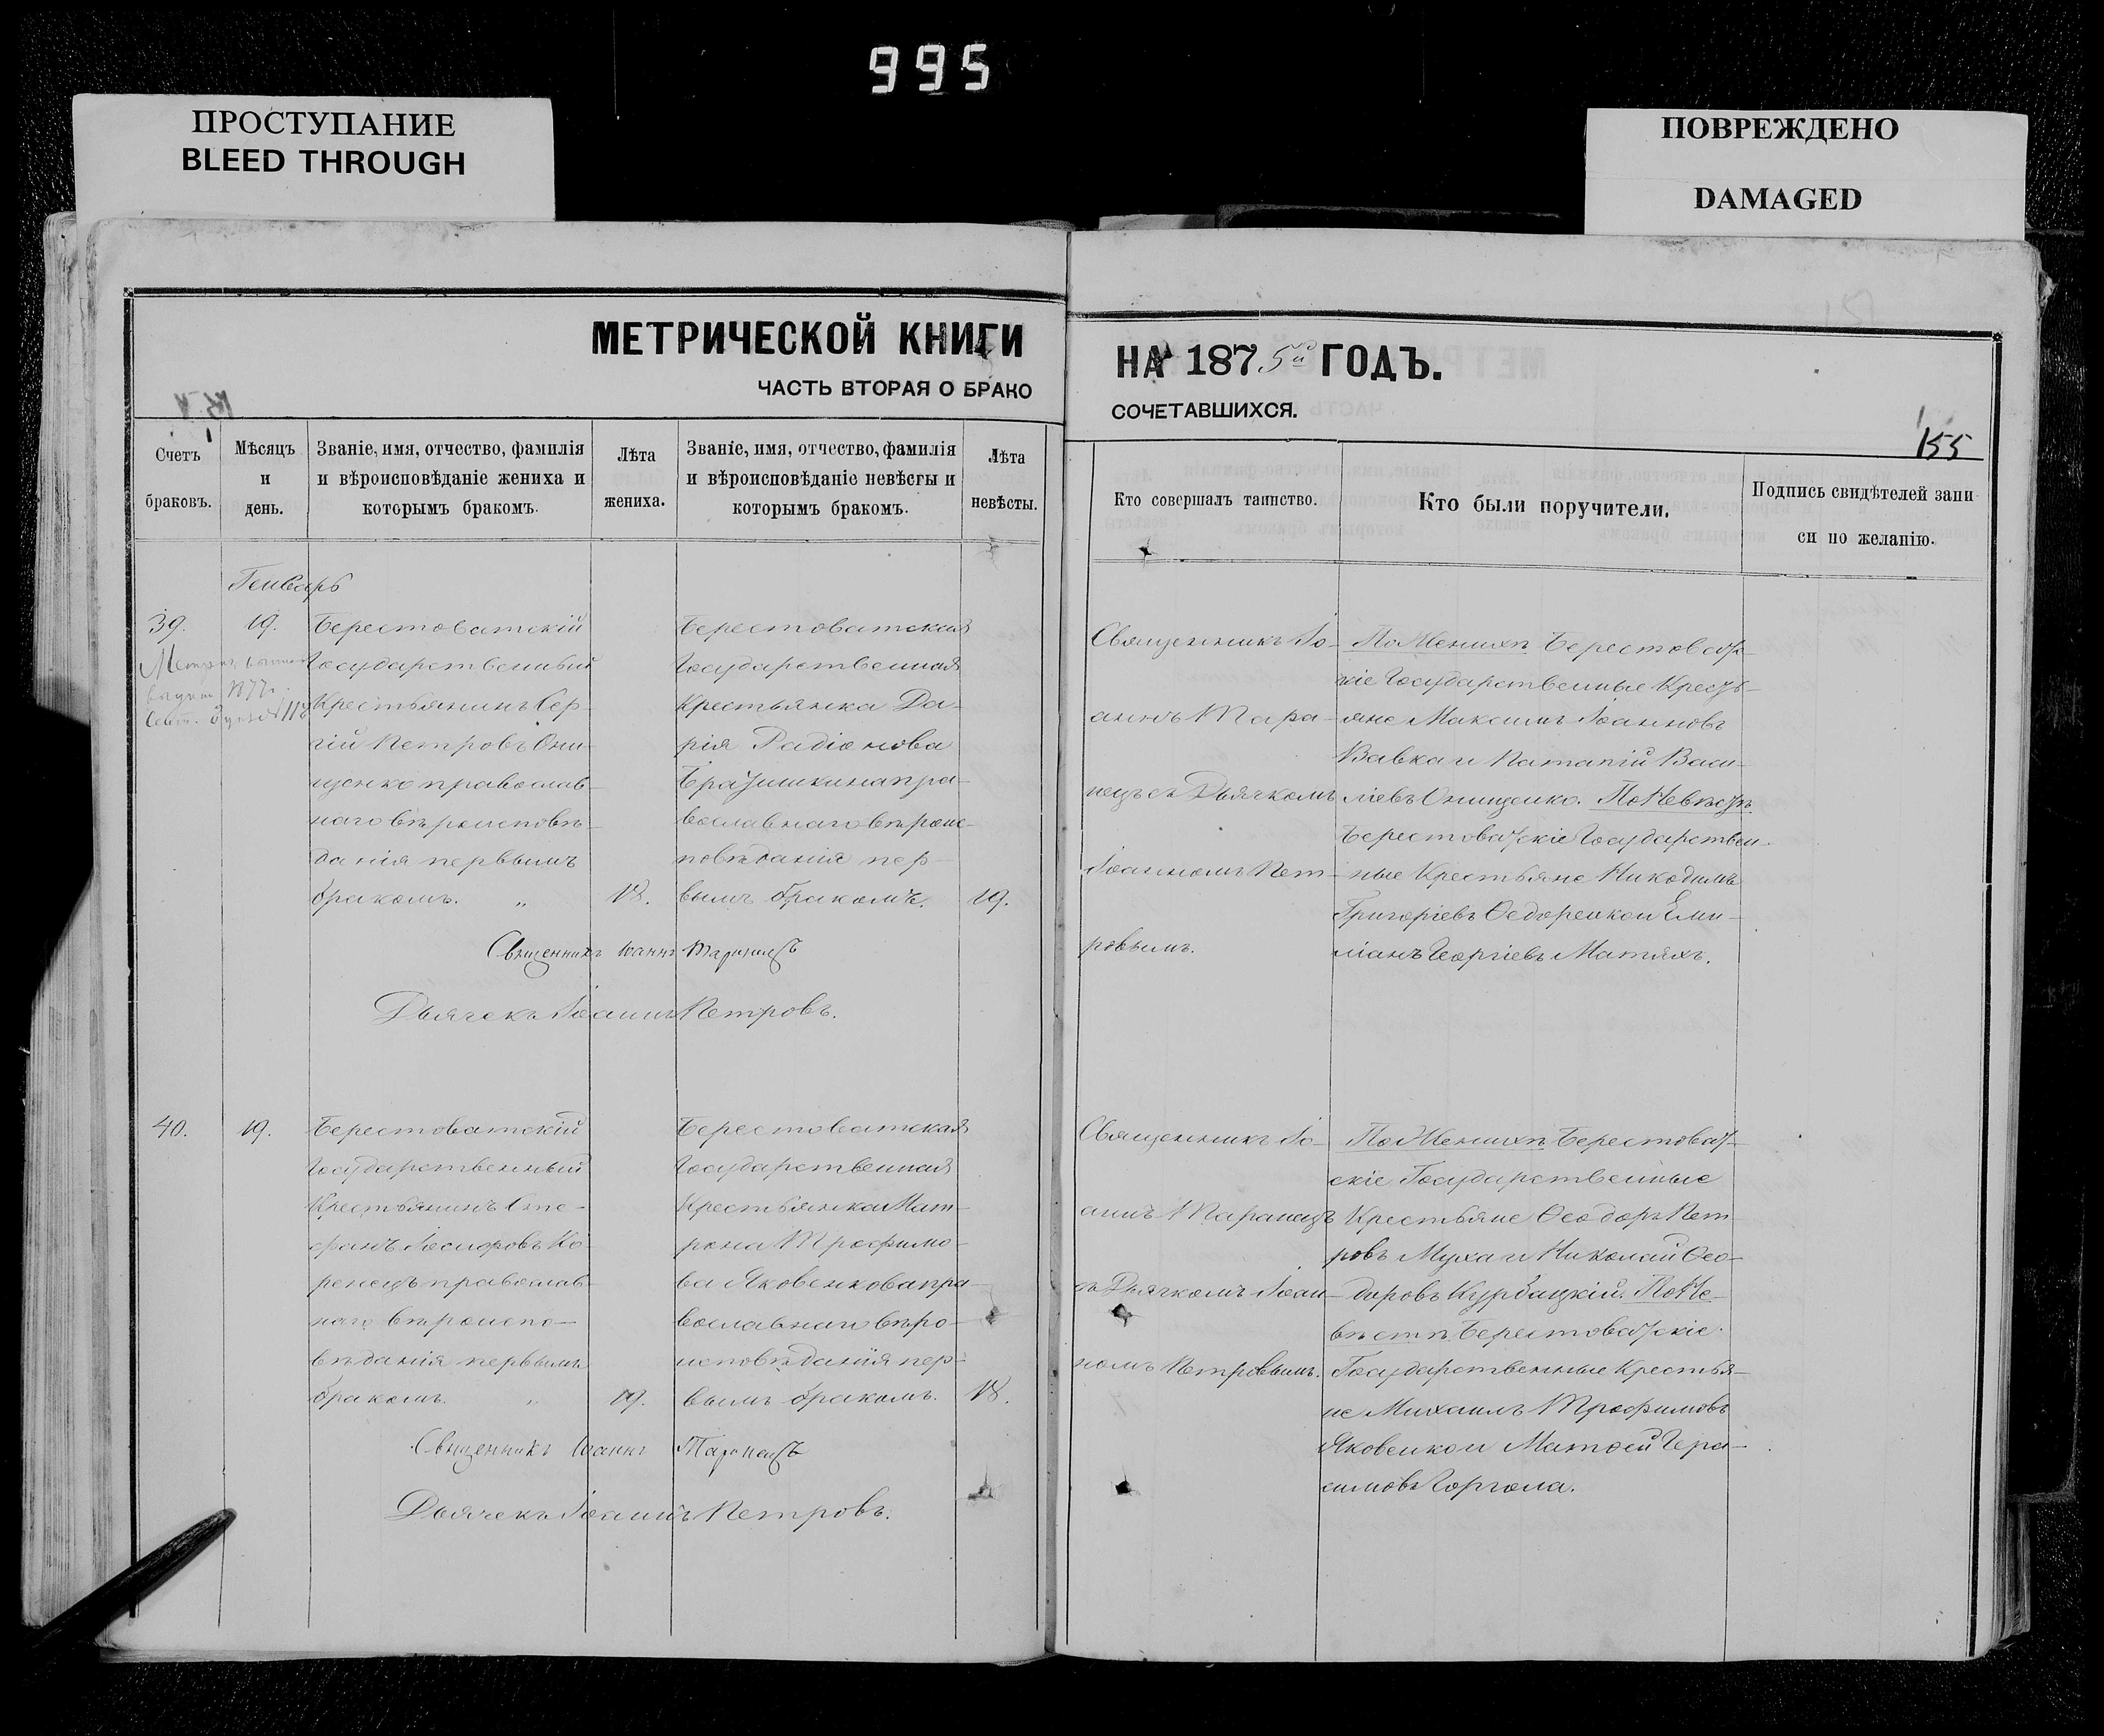 995
ПРОСТУПАНИЕ
BLEED THROUGH
ПОВРЕЖДЕНО
DAMAGED
МЕТРИЧЕСКОЙ КНИГИ
ЧАСТЬ ВТОРАЯ О БРАКО
НА 1875й ГОДЪ.
СОЧЕТАВШИХСЯ.
155
Счетъ
браковъ.
Мѣсяцъ
и
день.
Званіе, имя, отчество, фамилія
и вѣроисповѣданіе жениха и
которымъ бракомъ.
Лѣта
жениха.
Званіе, имя, отчество, фамилія
и вѣроисповѣданіе невѣсты и
которымъ бракомъ.
Лѣта
невѣсты.
Кто совершалъ таинство.
Кто были поручители.
Подпись свидѣтелей запи
си по желанію.
Генварь
39.
19.
1877г.
Берестоватскій
Государственный
Крестьянинъ Сер-
гій Петровъ Они-
щенко православ-
наго вѣроисповѣ-
данія первымъ
бракомъ. „
18.
Берестоватская
Государственная
Крестьянка Да-
рія Радіонова
пра-
вославнаго вѣроис-
повѣданія пер-
вымъ бракомъ.
19.
Священникъ Іо-
аннъ Тара-
нецъ съ Дьячкомъ
Іоанномъ Пет-
ровымъ.
По Женихѣ Берестоват-
скіе Государственные Кресть-
яне Максимъ Іоанновъ
Вавка и Потапій Васи-
ліевъ Онищенко. По Невѣстѣ
Берестоватскіе Государствен-
ные Крестьяне Никодимъ
Григоріевъ Ѳедоренко и Еми-
ліанъ Георгіевъ Матяхъ.
Священникъ Іоаннъ Таранецъ
Дьячекъ Іоаннъ Петровъ.
40.
19.
Берестоватскій
Государственный
Крестьянинъ Сте-
фанъ Іосифовъ Ко-
ренецъ православ-
наго вѣроиспо-
вѣданія первымъ
бракомъ. „
19.
Берестоватская
Государственная
Крестьянка Мат-
рона Трофимо-
ва Яковенкова пра-
вославнаго вѣро-
исповѣданія пер-
вымъ бракомъ.
18.
Священникъ Іо-
аннъ Таранецъ
съ Дьячкомъ Іоан-
номъ Петровымъ.
По Женихѣ Берестоват-
скіе Государственные
Крестьяне Ѳеодоръ Пет-
ровъ Муха и Николай Ѳео-
доровъ Курбацкій. По Не-
вѣстѣ Берестоватскіе
Государственные Крестья-
не Михаилъ Трофимовъ
Яковенко и Матѳей Гера-
симовъ Горгола.
Священникъ Іоаннъ Таранецъ
Дьячекъ Іоаннъ Петровъ.